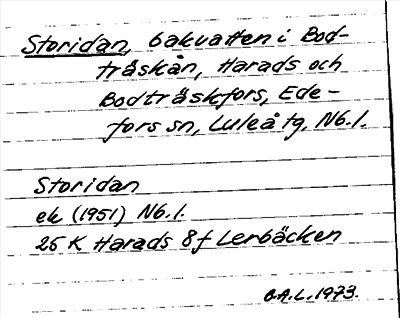 Storidan, bakvatten i Bod-
träskån, Harads och
Bodträskfors, Ede-
fors sn, Luleå tg, Nb.l.
Storidan
ek (1951) Nb.l.
25 K Harads 8f Lerbäcken
B.A.L. 1973.